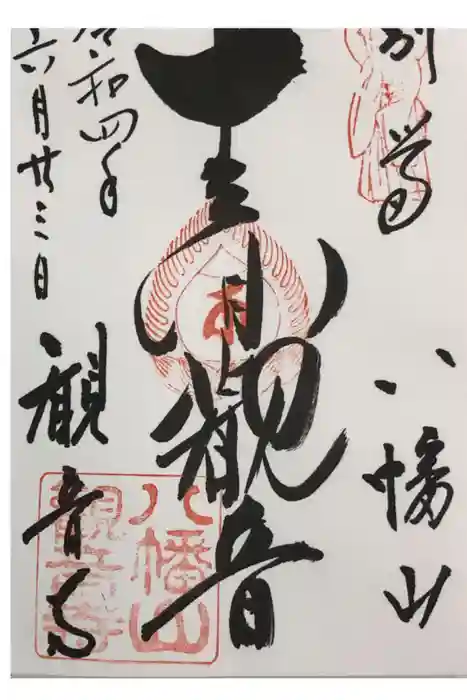 別当
八幡山
観音
令和四年
六月廿三日
観音寺
八幡山
観音寺